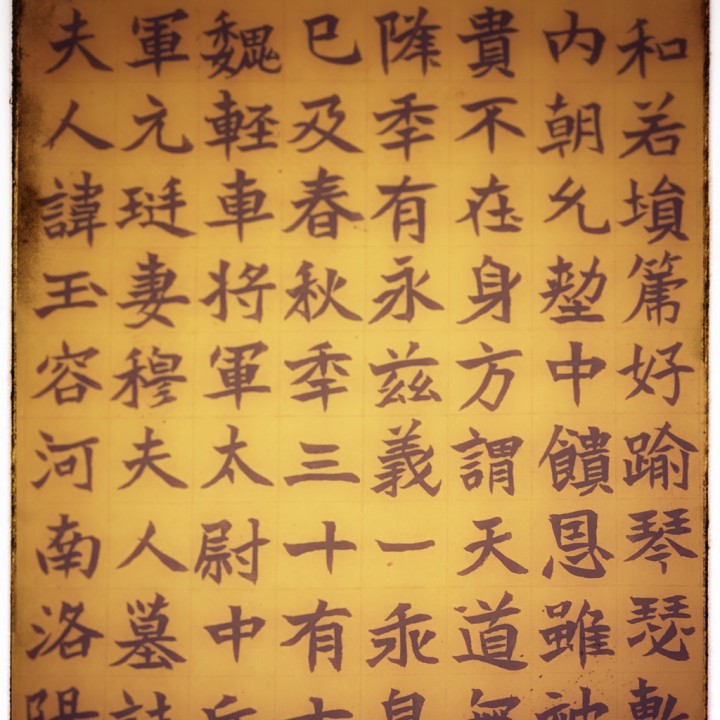 和若塤篪好踰琴瑟
内朝允塾中饋恩雖
貴不在身方謂天道無
降秊有永兹義一乖
巳及春秋秊三十有
魏軽車将軍太尉中兵
軍元珽妻穆夫人墓誌
夫人諱玉容河南洛陽